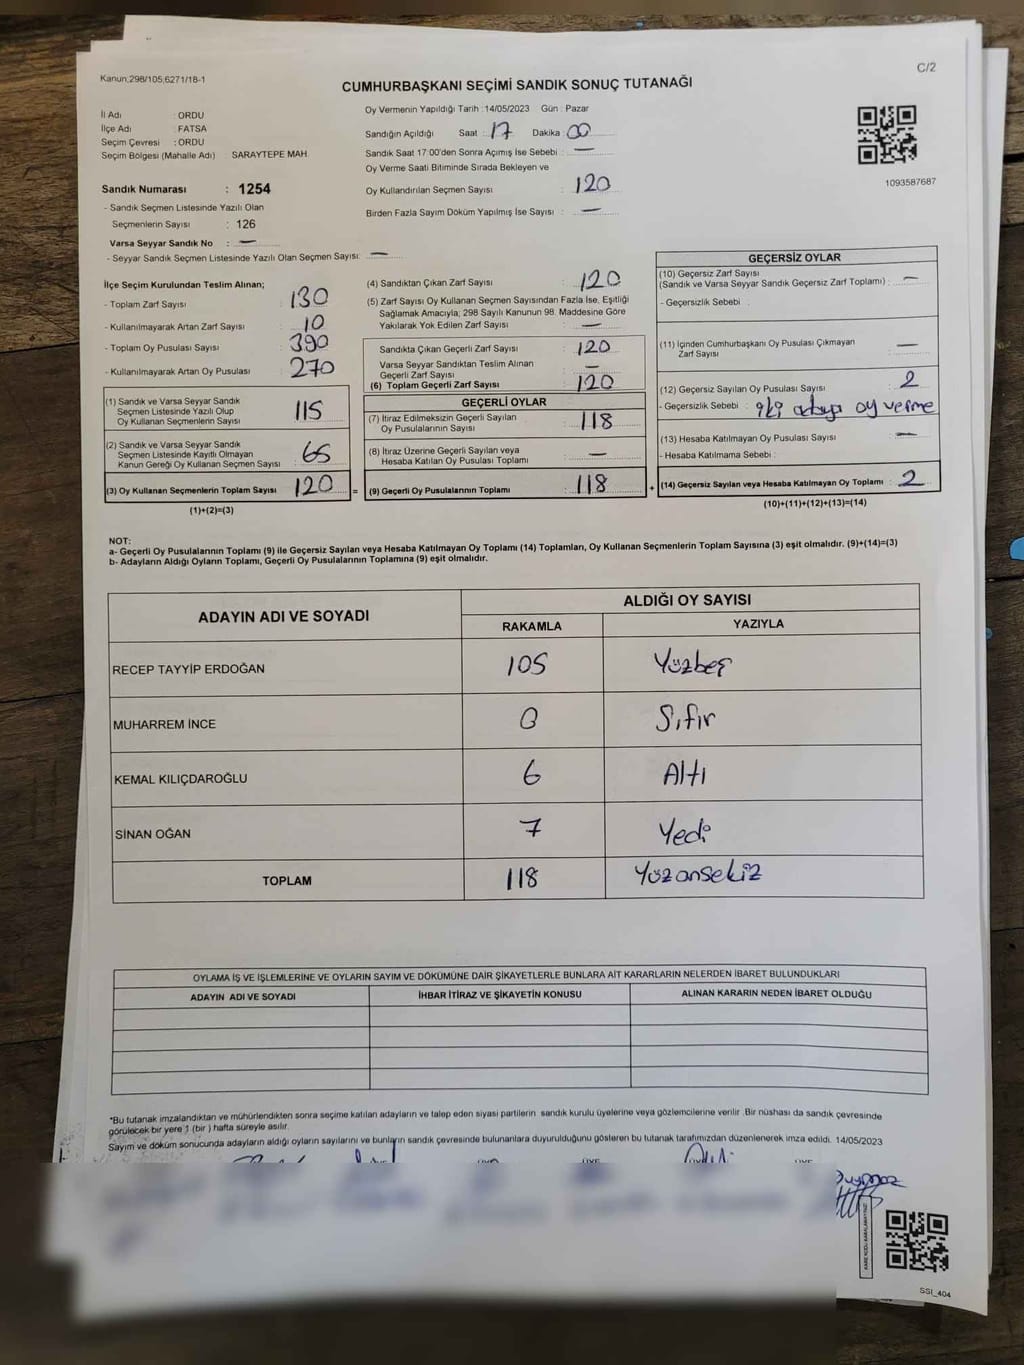 C/2
Kanun,298/105,6271/18-1
CUMHURBAŞKANI SEÇİMİ SANDIK SONUÇ TUTANAĞI
İl Adı : ORDU
İlçe Adı : FATSA
Seçim Çevresi : ORDU
Seçim Bölgesi (Mahalle Adı) SARAYTEPE MAH.
Sandık Numarası : 1254
- Sandık Seçmen Listesinde Yazılı Olan
Seçmenlerin Sayısı : 126
Varsa Seyyar Sandık No : —
- Seyyar Sandık Seçmen Listesinde Yazılı Olan Seçmen Sayısı: —
Oy Vermenin Yapıldığı Tarih :14/05/2023 Gün : Pazar
Sandığın Açıldığı Saat : 17 Dakika : 00
Sandık Saat 17:00'den Sonra Açımış İse Sebebi : —
Oy Verme Saati Bitiminde Sırada Bekleyen ve
Oy Kullandırılan Seçmen Sayısı : 120
Birden Fazla Sayım Döküm Yapılmış İse Sayısı : —
1093587687
İlçe Seçim Kurulundan Teslim Alınan;
- Toplam Zarf Sayısı 130
- Kullanılmayarak Artan Zarf Sayısı 10
- Toplam Oy Pusulası Sayısı 390
- Kullanılmayarak Artan Oy Pusulası 270
(1) Sandık ve Varsa Seyyar Sandık
Seçmen Listesinde Yazılı Olup
Oy Kullanan Seçmenlerin Sayısı 115
(2) Sandık ve Varsa Seyyar Sandık
Seçmen Listesinde Kayıtlı Olmayan
Kanun Gereği Oy Kullanan Seçmen Sayısı
(3) Oy Kullanan Seçmenlerin Toplam Sayısı 120 =
(1)+(2)=(3)
(4) Sandıktan Çıkan Zarf Sayısı : 120
(5) Zarf Sayısı Oy Kullanan Seçmen Sayısından Fazla İse, Eşitliği
Sağlamak Amacıyla; 298 Sayılı Kanunun 98. Maddesine Göre
Yakılarak Yok Edilen Zarf Sayısı : —
Sandıkta Çıkan Geçerli Zarf Sayısı : 120
Varsa Seyyar Sandıktan Teslim Alınan
Geçerli Zarf Sayısı : —
(6) Toplam Geçerli Zarf Sayısı : 120
GEÇERLİ OYLAR
(7) İtiraz Edilmeksizin Geçerli Sayılan
Oy Pusulalarının Sayısı : 118
(8) İtiraz Üzerine Geçerli Sayılan veya
Hesaba Katılan Oy Pusulası Toplamı : —
(9) Geçerli Oy Pusulalarının Toplamı : 118 +
GEÇERSİZ OYLAR
(10) Geçersiz Zarf Sayısı
(Sandık ve Varsa Seyyar Sandık Geçersiz Zarf Toplamı) : —
- Geçersizlik Sebebi :
(11) İçinden Cumhurbaşkanı Oy Pusulası Çıkmayan
Zarf Sayısı : —
(12) Geçersiz Sayılan Oy Pusulası Sayısı : 2
- Geçersizlik Sebebi : iki adaya oy verme
(13) Hesaba Katılmayan Oy Pusulası Sayısı : —
- Hesaba Katılmama Sebebi :
(14) Geçersiz Sayılan veya Hesaba Katılmayan Oy Toplamı : 2
(10)+(11)+(12)+(13)=(14)
NOT:
a- Geçerli Oy Pusulalarının Toplamı (9) ile Geçersiz Sayılan veya Hesaba Katılmayan Oy Toplamı (14) Toplamları, Oy Kullanan Seçmenlerin Toplam Sayısına (3) eşit olmalıdır. (9)+(14)=(3)
b- Adayların Aldığı Oyların Toplamı, Geçerli Oy Pusulalarının Toplamına (9) eşit olmalıdır.
ADAYIN ADI VE SOYADI ALDIĞI OY SAYISI
RAKAMLA YAZIYLA
RECEP TAYYİP ERDOĞAN 105 Yüzbeş
MUHARREM İNCE 0 Sıfır
KEMAL KILIÇDAROĞLU 6 Altı
SİNAN OĞAN 7 Yedi
TOPLAM 118 Yüzonsekiz
OYLAMA İŞ VE İŞLEMLERİNE VE OYLARIN SAYIM VE DÖKÜMÜNE DAİR ŞİKAYETLERLE BUNLARA AİT KARARLARIN NELERDEN İBARET BULUNDUKLARI
ADAYIN ADI VE SOYADI İHBAR İTİRAZ VE ŞİKAYETİN KONUSU ALINAN KARARIN NEDEN İBARET OLDUĞU
*Bu tutanak imzalandıktan ve mühürlendikten sonra seçime katılan adayların ve talep eden siyasi partilerin sandık kurulu üyelerine veya gözlemcilerine verilir .Bir nüshası da sandık çevresinde
görülecek bir yere 1 (bir ) hafta süreyle asılır.
Sayım ve döküm sonucunda adayların aldığı oyların sayılarını ve bunların sandık çevresinde bulunanlara duyurulduğunu gösteren bu tutanak tarafımızdan düzenlenerek imza edildi. 14/05/2023
KARE KODU KARALAMAYINIZ
SSI_404